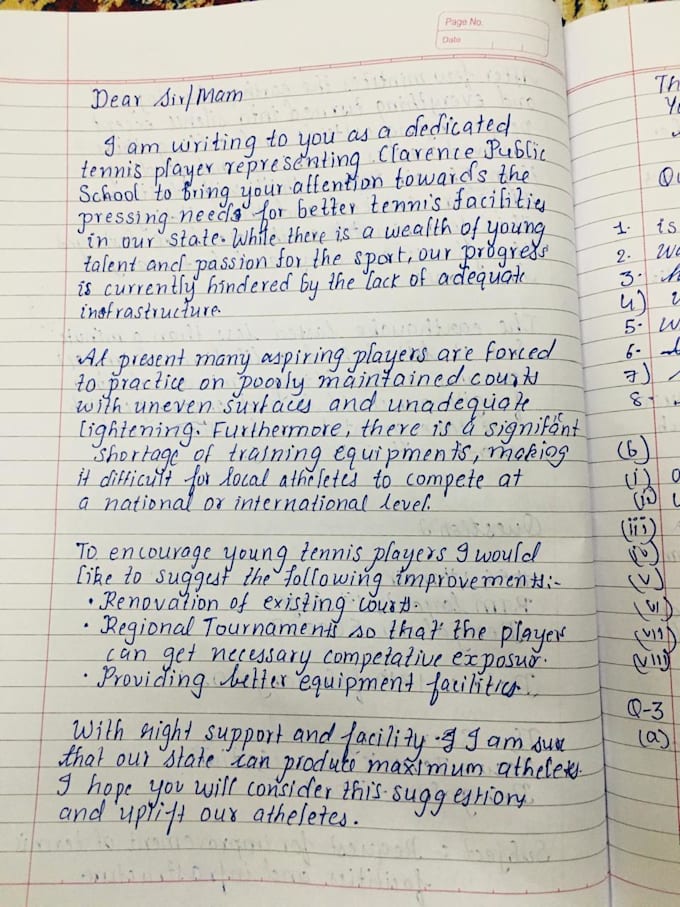 Page No.
Date
Dear Sir/Mam
I am writing to you as a dedicated
tennis player representing Clarence Public
School to bring your attention towards the
pressing needs for better tennis facilities
in our state. While there is a wealth of young
talent and passion for the sport, our progress
is currently hindered by the lack of adequate
infrastructure.
At present many aspiring players are forced
to practice on poorly maintained courts
with uneven surfaces and unadequate
lightening. Furthermore, there is a signifant
shortage of training equipments, making
it difficult for local atheletes to compete at
a national or international level.
To encourage young tennis players I would
like to suggest the following improvements:-
• Renovation of existing courts.
• Regional Tournaments so that the player
can get necessary competative exposur.
• Providing better equipment facilities.
With right support and facility I am sure
that our state can produce maximum atheletes.
I hope you will consider this suggestions
and uplift our atheletes.
Th
Yo
Qu
1. is
2. wa
3.
4)
5. w
6.
7)
8.
(b)
(i)
(ii)
(iii)
(iv)
(v)
(vi)
(vii)
(viii)
Q-3
(a)